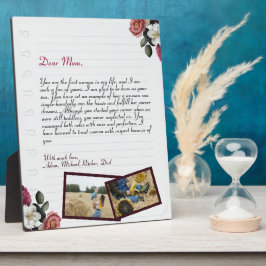 Dear Mom,
You are the first woman in my life, and I am
such a fan of yours. I am glad to be born as your
son. You have set an example of how a woman can
single-handedly run the house and fulfill her career
dreams. Although you started your career when we
were still toddlers, you never neglected us. You
managed both roles with ease and perfection. I
have learned to treat women with respect because of
you.
With much love,
Adam, Michael, Richie, Dad